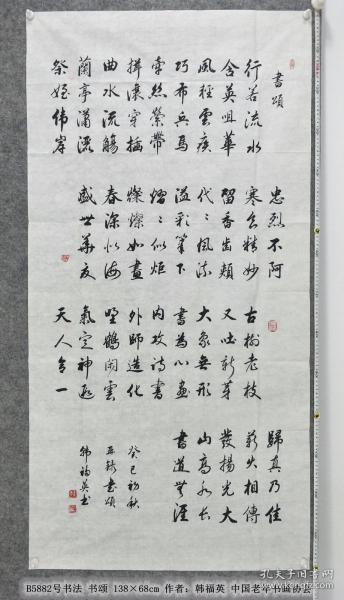 書頌
行若流水
含英咀華
風輕雲疾
巧布兵馬
牽絲縈帶
揖讓穿插
曲水流觴
蘭亭瀟灑
祭姪偉岸
忠烈不阿
寒食精妙
留香齒頰
代〻風流
溢彩筆下
熠〻似炬
燦燦如畫
春深似海
盛世華夏
古樹老枝
又吐新芽
大象無形
書為心畫
內攻詩書
外師造化
野鶴閑雲
氣定神逸
天人合一
歸真乃佳
薪火相傳
發揚光大
山高水長
書道無涯
癸巳初秋
書頌
韓福英書
B5882号书法 书颂 138×68cm 作者：韩福英 中国老年书画协会